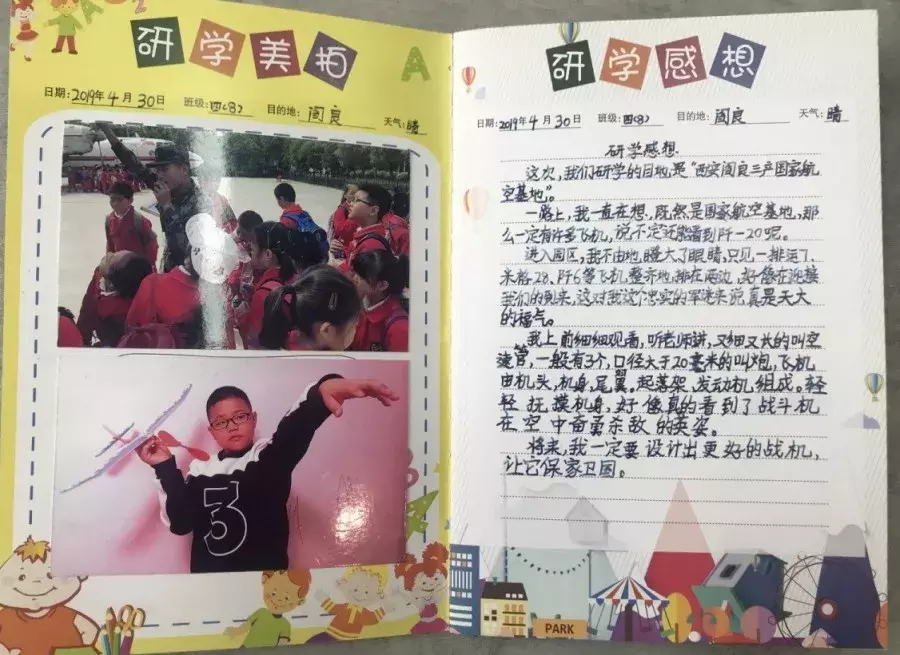 研学美拍
日期: 2019年4月30日 班级: 四(8) 目的地: 阎良 天气: 晴
研学感想
日期: 2019年4月30日 班级: 四(8) 目的地: 阎良 天气: 晴
研学感想
这次,我们研学的目地,是“西安阎良三产国家航
空基地”。
一路上,我一直在想,既然是国家航空基地,那
么一定有许多飞机,说不定还能看到歼-20呢。
进入园区,我不由地瞪大了眼睛,只见一排运7、
米格28、歼6等飞机整齐地排在两边,好像在迎接
我们的到来,这对我这个忠实的军迷来说真是天大
的福气。
我上前细细观看,听老师讲,又细又长的叫空
速管,一般有3个,口径大于20毫米的叫炮,飞机
由机头,机身,尾翼。起落架、发动机组成。轻
轻抚摸机身,好像真的看到了战斗机
在空中奋勇杀敌的英姿。
将来,我一定要设计出更好的战机,
让它保家卫国。
3
PARK